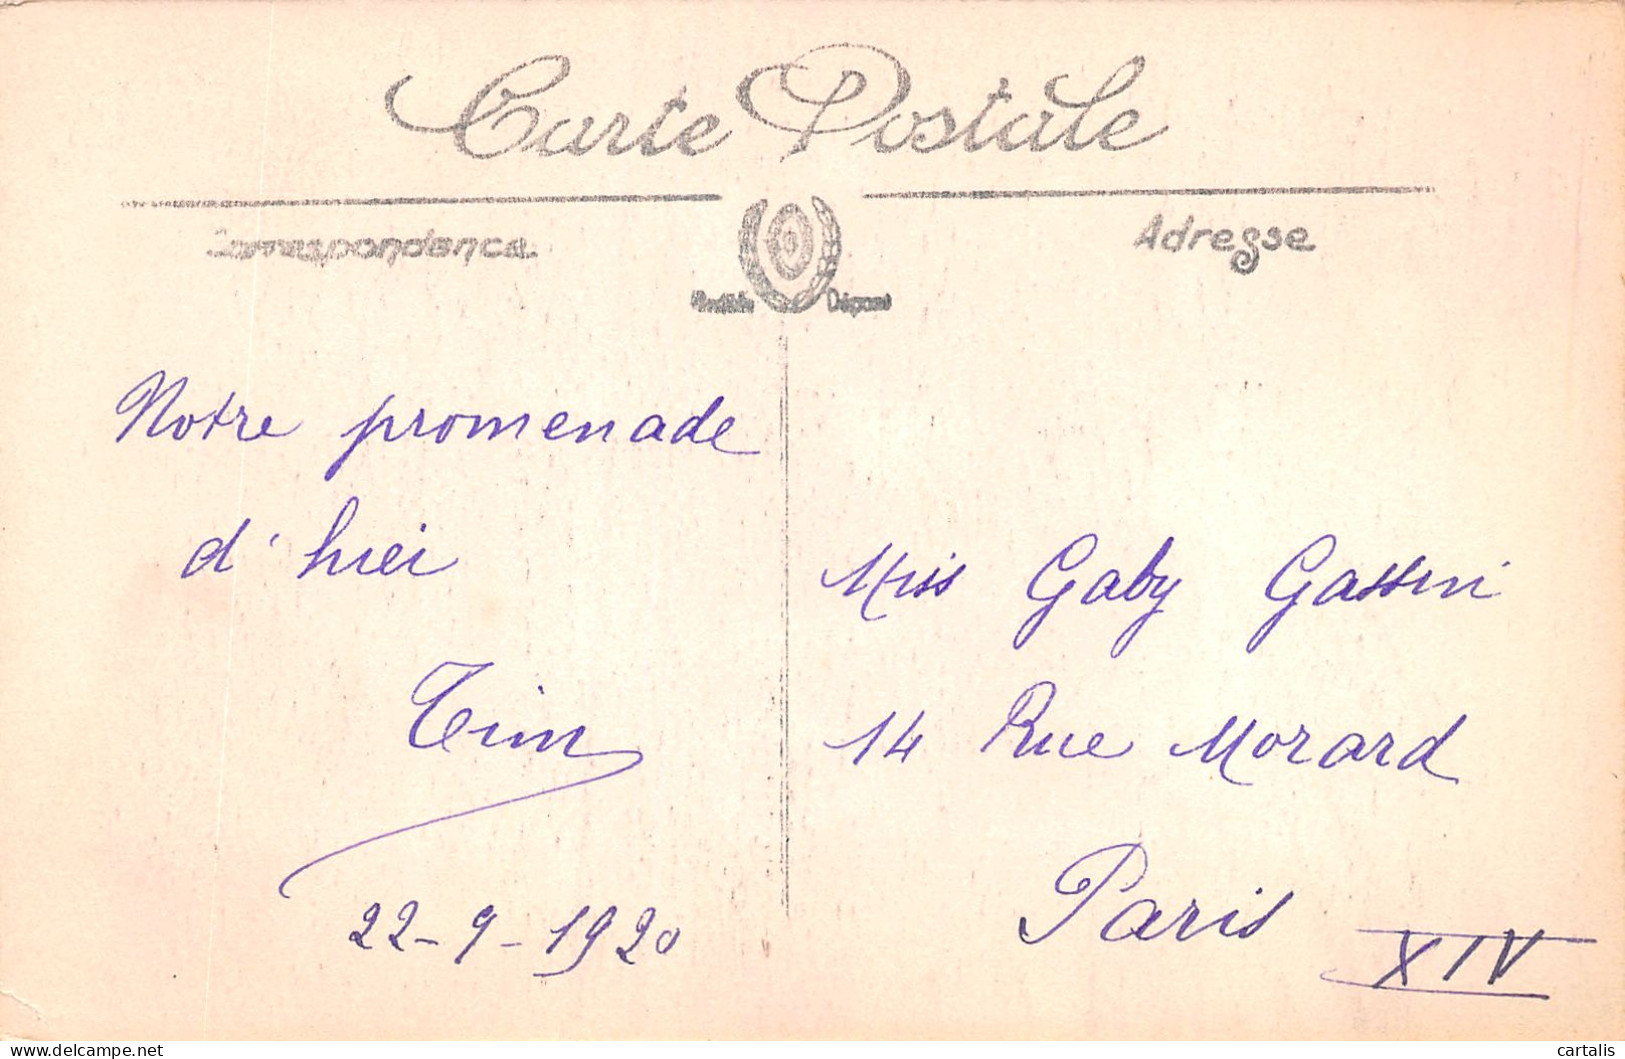 Carte Postale
Correspondance
Adresse
Modèle Déposé
Notre promenade
d'hier
Tim
22-9-1920
Miss Gaby
14 Rue Morard
Paris XIV
delcampe.net
cartalis